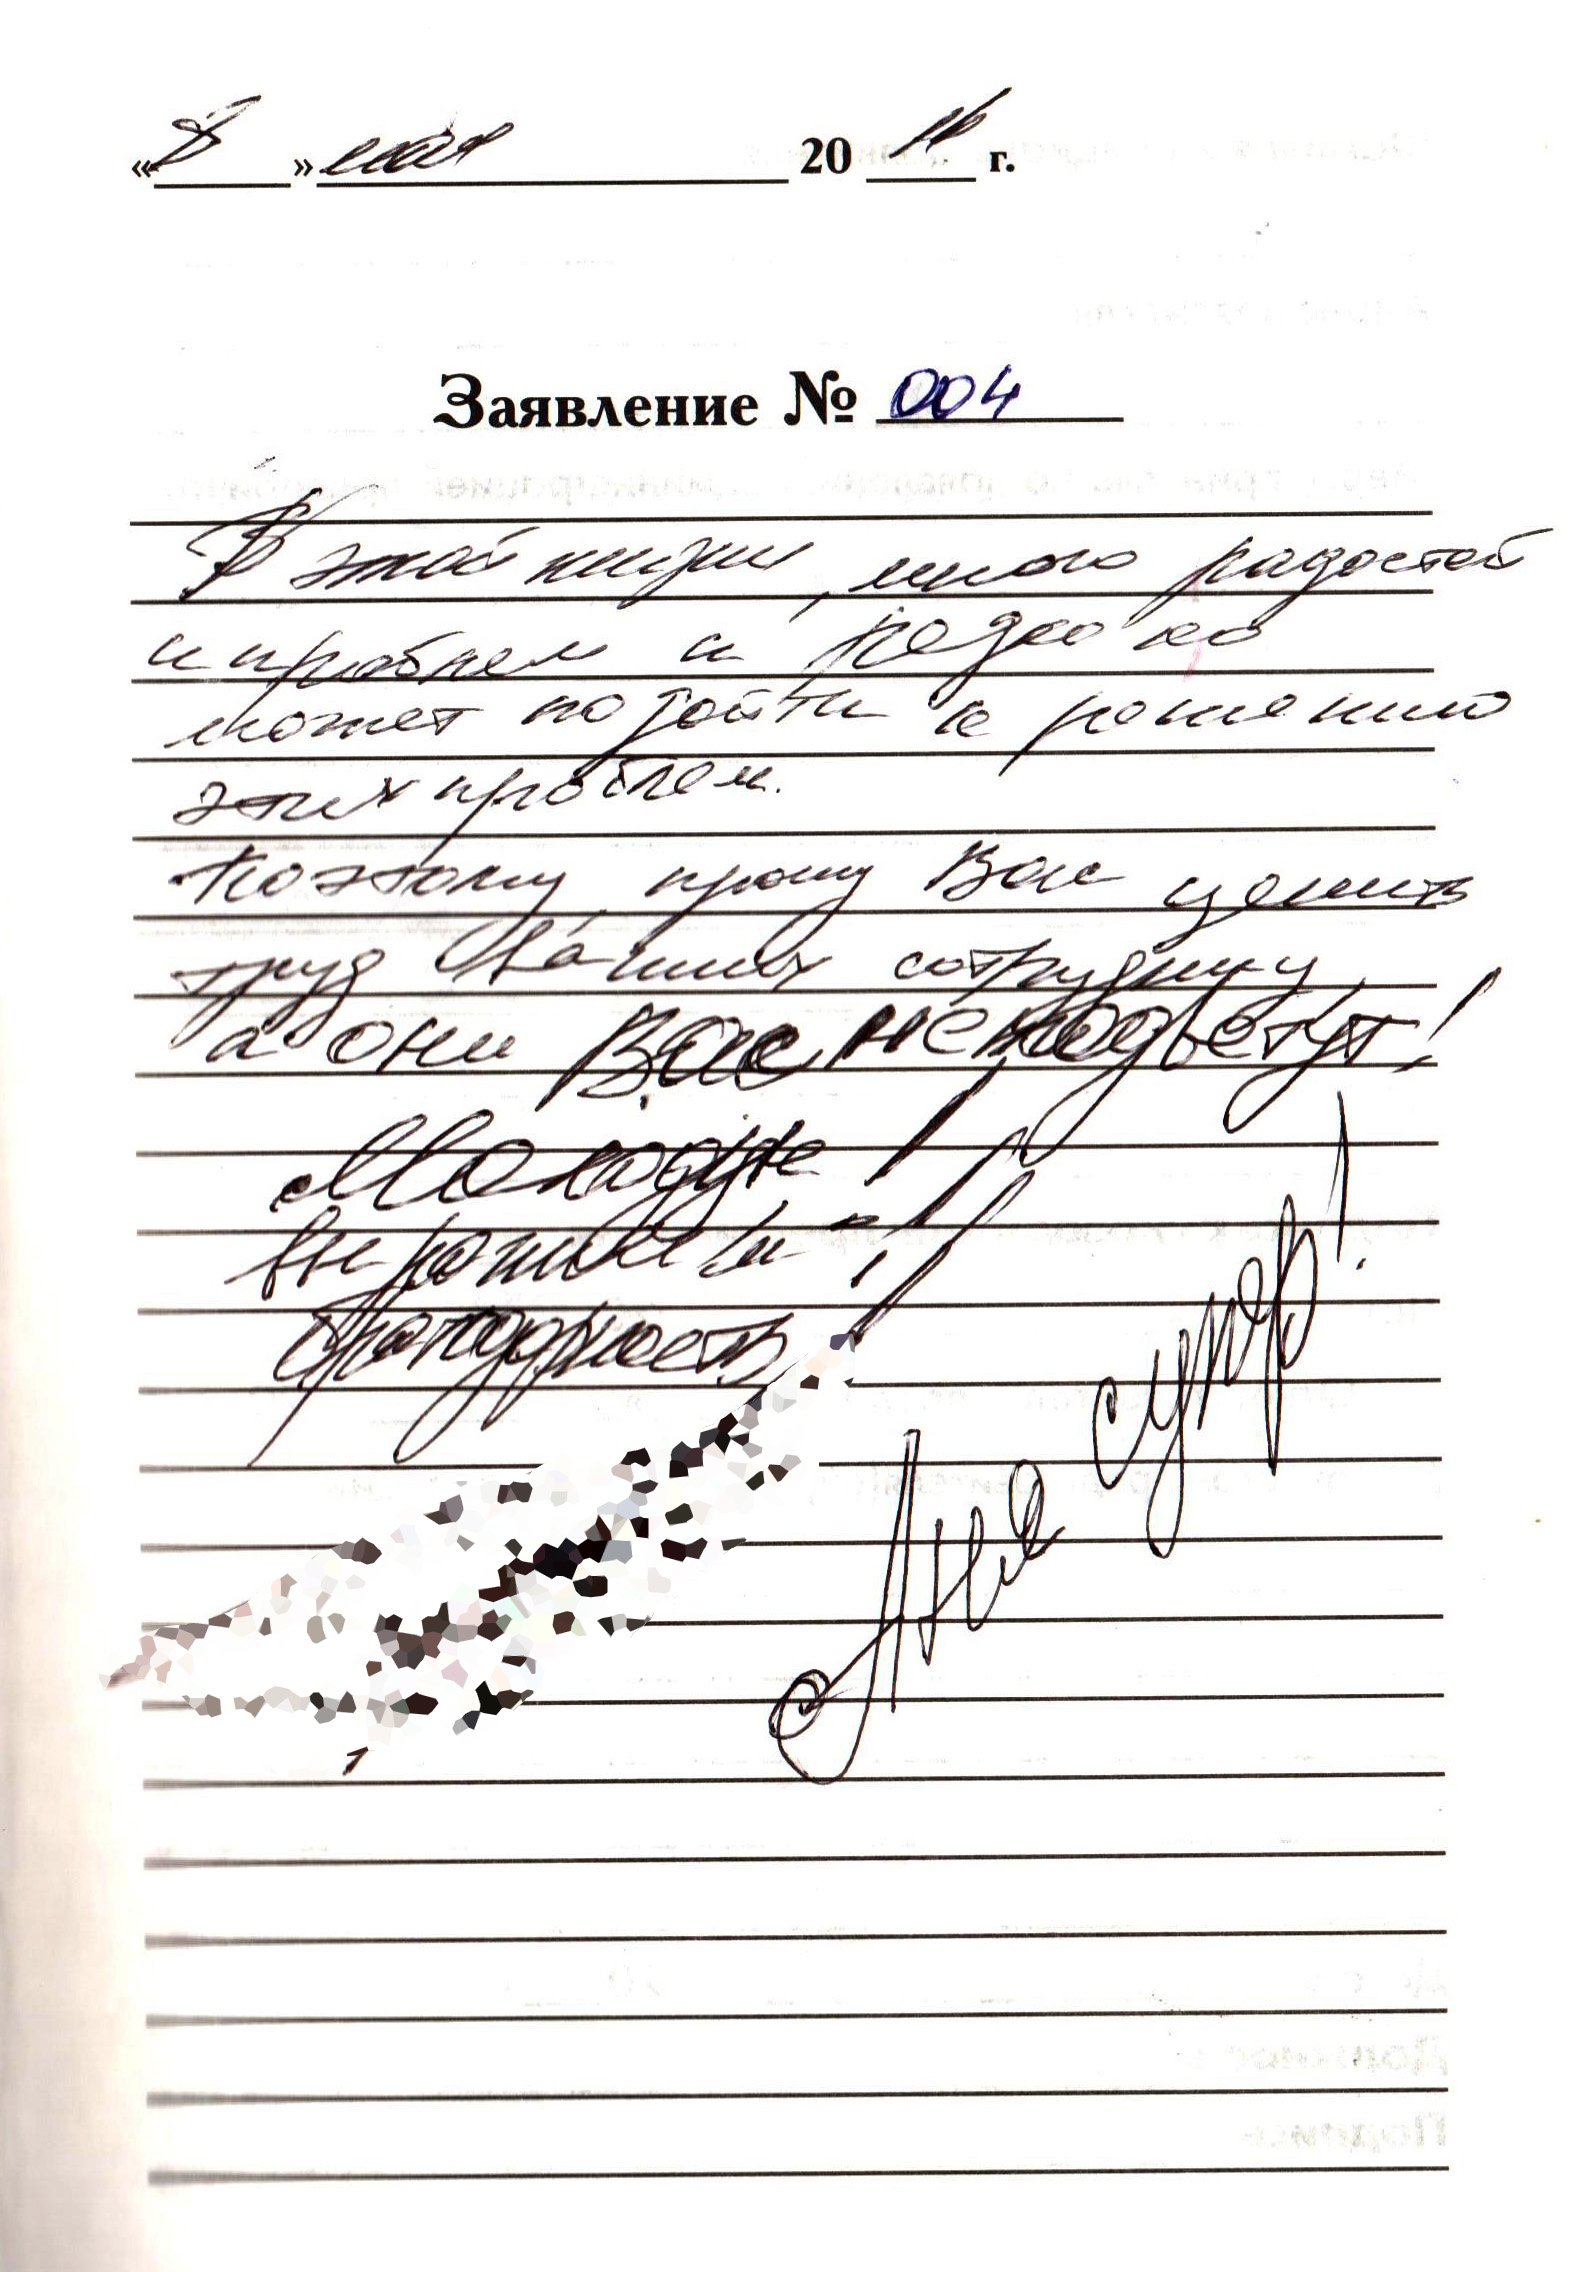 «8» мая 2011 г.
Заявление № 004
В этой жизни, много радостей
и проблем и редко кто
может подойти к решению
этих проблем.
Поэтому, прошу Вас ценить
труд Ваших сотрудниц,
а они Вас не подведут!
Молодые!
благодарность!
Аня супер!